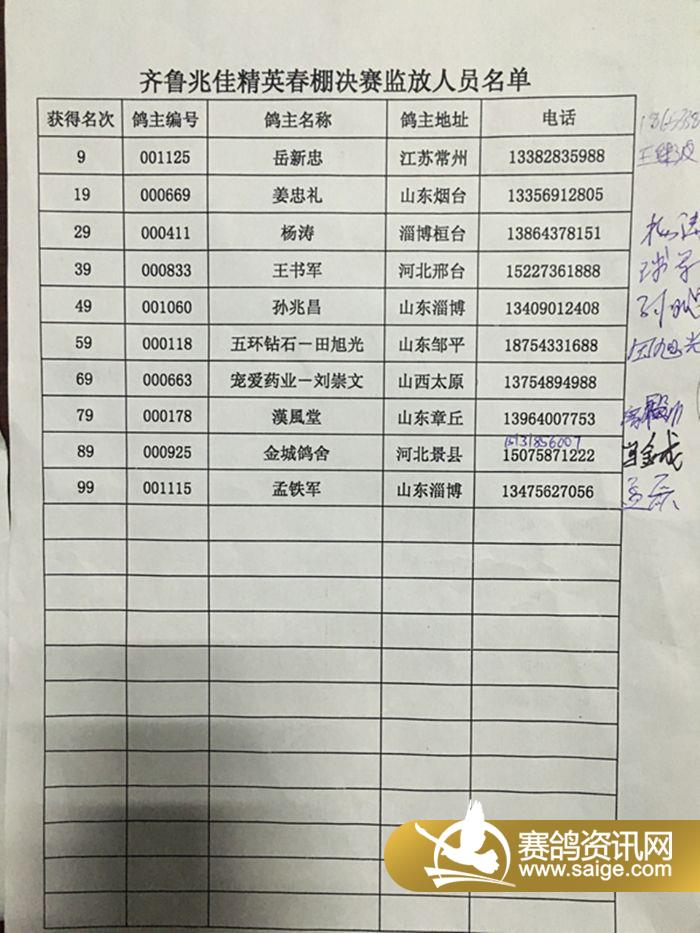 齐鲁兆佳精英春棚决赛监放人员名单
获得名次 鸽主编号 鸽主名称 鸽主地址 电话
9 001125 岳新忠 江苏常州 13382835988
19 000669 姜忠礼 山东烟台 13356912805
29 000411 杨涛 淄博桓台 13864378151 杨涛
39 000833 王书军 河北邢台 15227361888
49 001060 孙兆昌 山东淄博 13409012408
59 000118 五环钻石－田旭光 山东邹平 18754331688 田旭光
69 000663 宠爱药业－刘崇文 山西太原 13754894988
79 000178 漢風堂 山东章丘 13964007753
15131856007
89 000925 金城鸽舍 河北景县 15075871222
99 001115 孟铁军 山东淄博 13475627056
赛鸽资讯网
www.saige.com